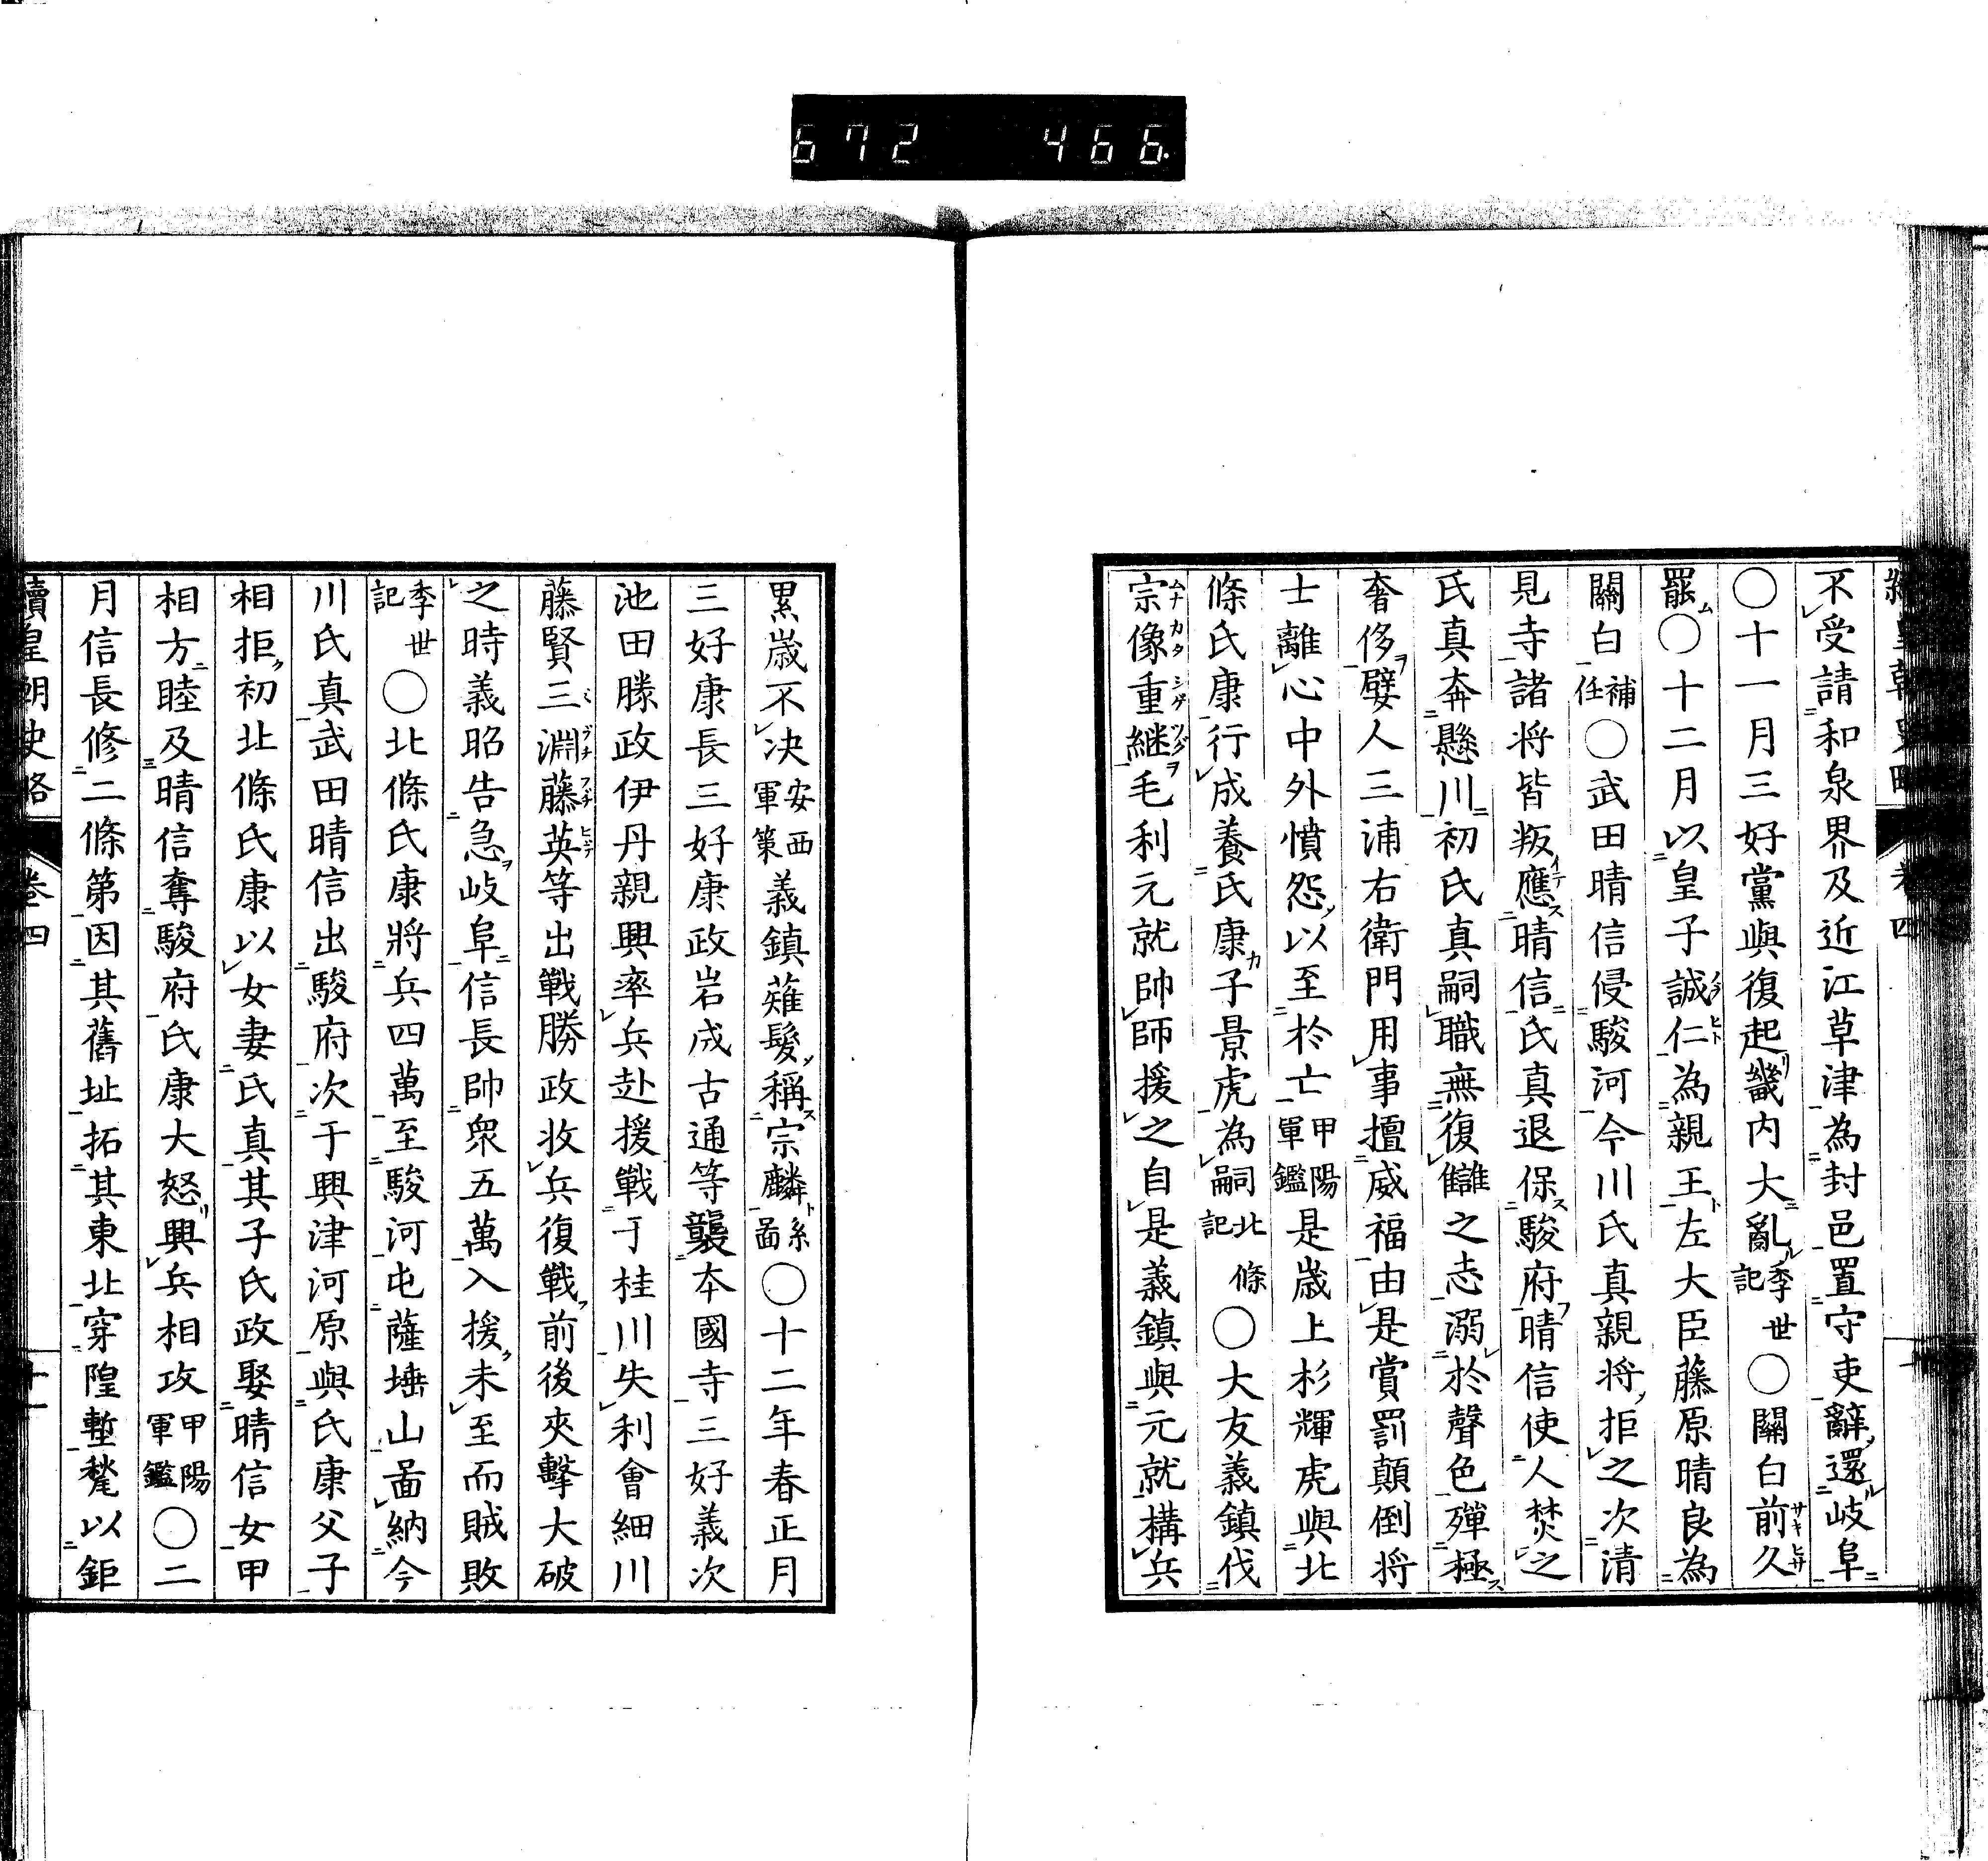 672 466.
不受請和泉界及近江草津為封邑置守吏辭還岐阜
○十一月三好黨與復起畿内大亂季世記○關白前久
罷○十二月以皇子誠仁為親王左大臣藤原晴良為
關白補任○武田晴信侵駿河今川氏真親将拒之次清
見寺諸将皆叛應晴信氏真退保駿府晴信使人焚之
氏真奔懸川初氏真嗣職無復讎之志溺於聲色殫極
奢侈嬖人三浦右衛門用事擅威福由是賞罰顛倒将
士離心中外憤怨以至於亡甲陽軍鑑是歳上杉輝虎與北
條氏康行成養氏康子景虎為嗣北條記○大友義鎮伐
宗像重継毛利元就帥師援之自是義鎮與元就構兵
累歳不決安西軍策義鎮薙髮稱宗麟系啚○十二年春正月
三好康長三好康政岩成古通等襲本國寺三好義次
池田勝政伊丹親興率兵赴援戰于桂川失利會細川
藤賢三淵藤英等出戰勝政收兵復戰前後夾擊大破
之時義昭告急岐阜信長帥衆五萬入援未至而賊敗
季世記○北條氏康將兵四萬至駿河屯薩埵山啚納今
川氏真武田晴信出駿府次于興津河原與氏康父子
相拒初北條氏康以女妻氏真其子氏政娶晴信女甲
相方睦及晴信奪駿府氏康大怒興兵相攻甲陽軍鑑○二
月信長修二條第因其舊址拓其東北穿隍塹甃以鉅
續皇朝史略 卷四 十一